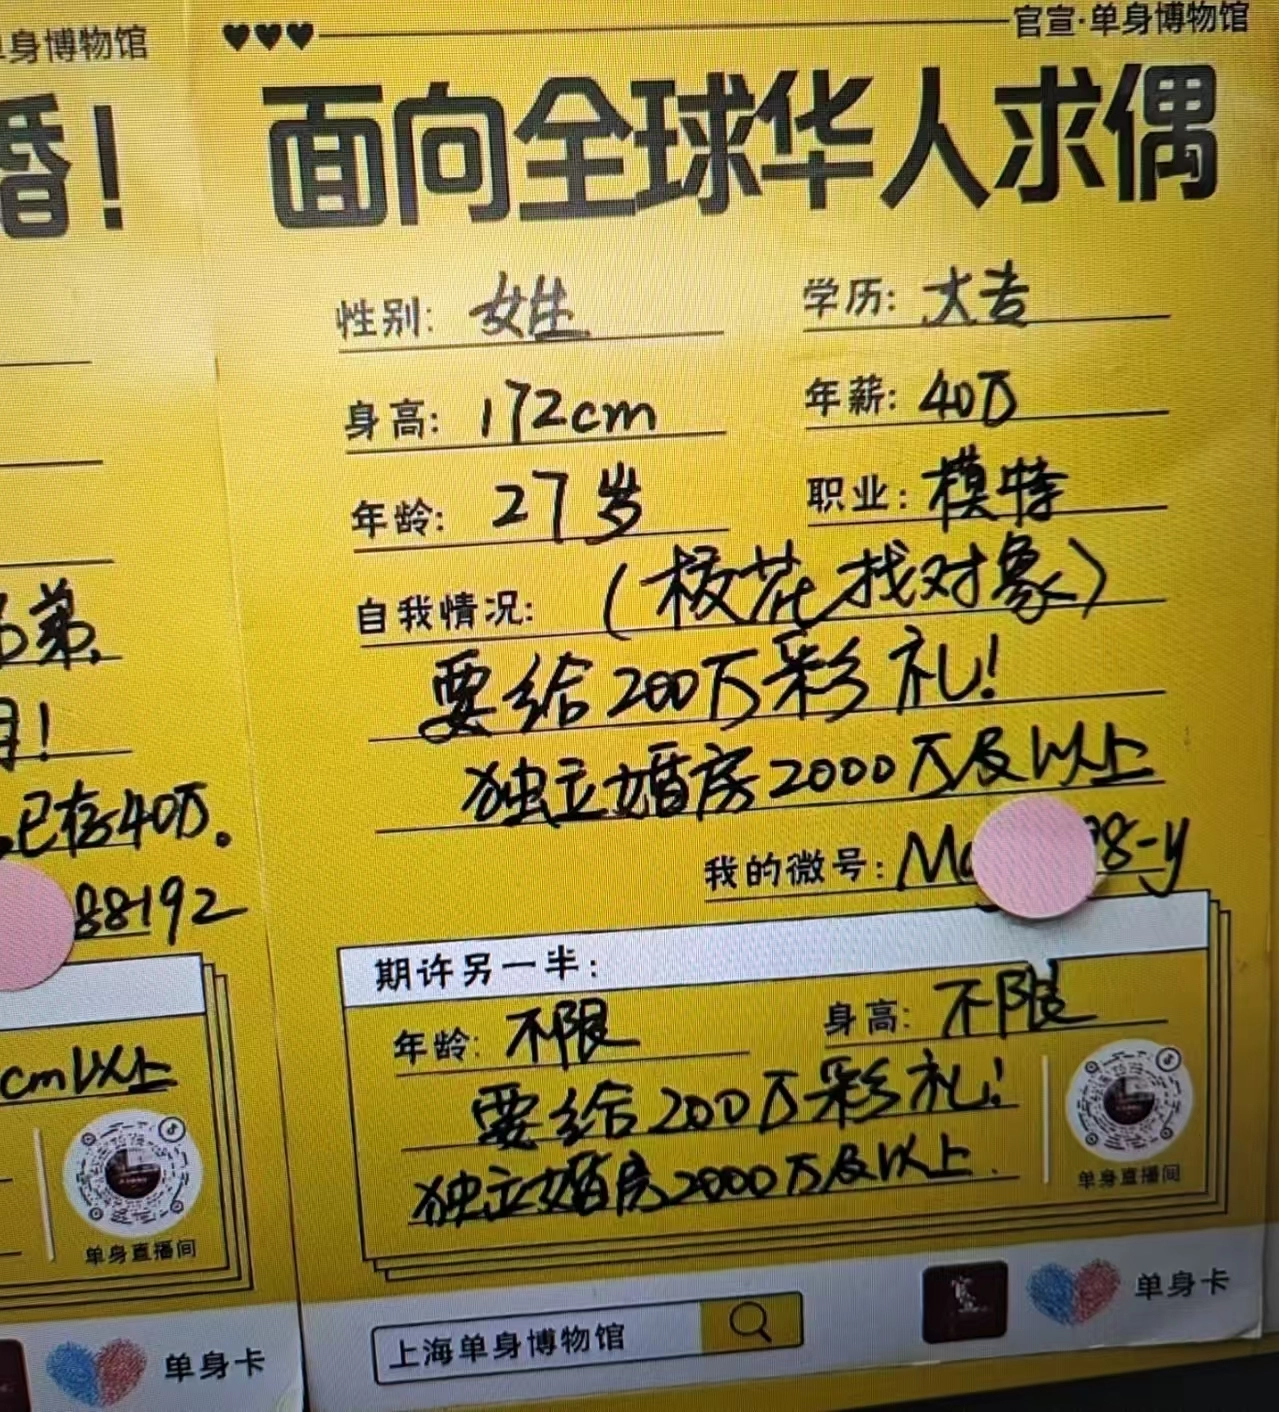 身博物馆
官宣·单身博物馆
婚!
面向全球华人求偶
性别: 女性
学历: 大专
身高: 172cm
年薪: 40万
年龄: 27岁
职业: 模特
自我情况: (校花找对象)
要给200万彩礼!
独立婚房2000万及以上
我的微号: M 8-y
弟.
!
已存40万。
88192
期许另一半:
年龄: 不限
身高: 不限
要给200万彩礼!
独立婚房2000万及以上.
单身直播间
cm以上
单身直播间
上海单身博物馆
单身卡
单身卡